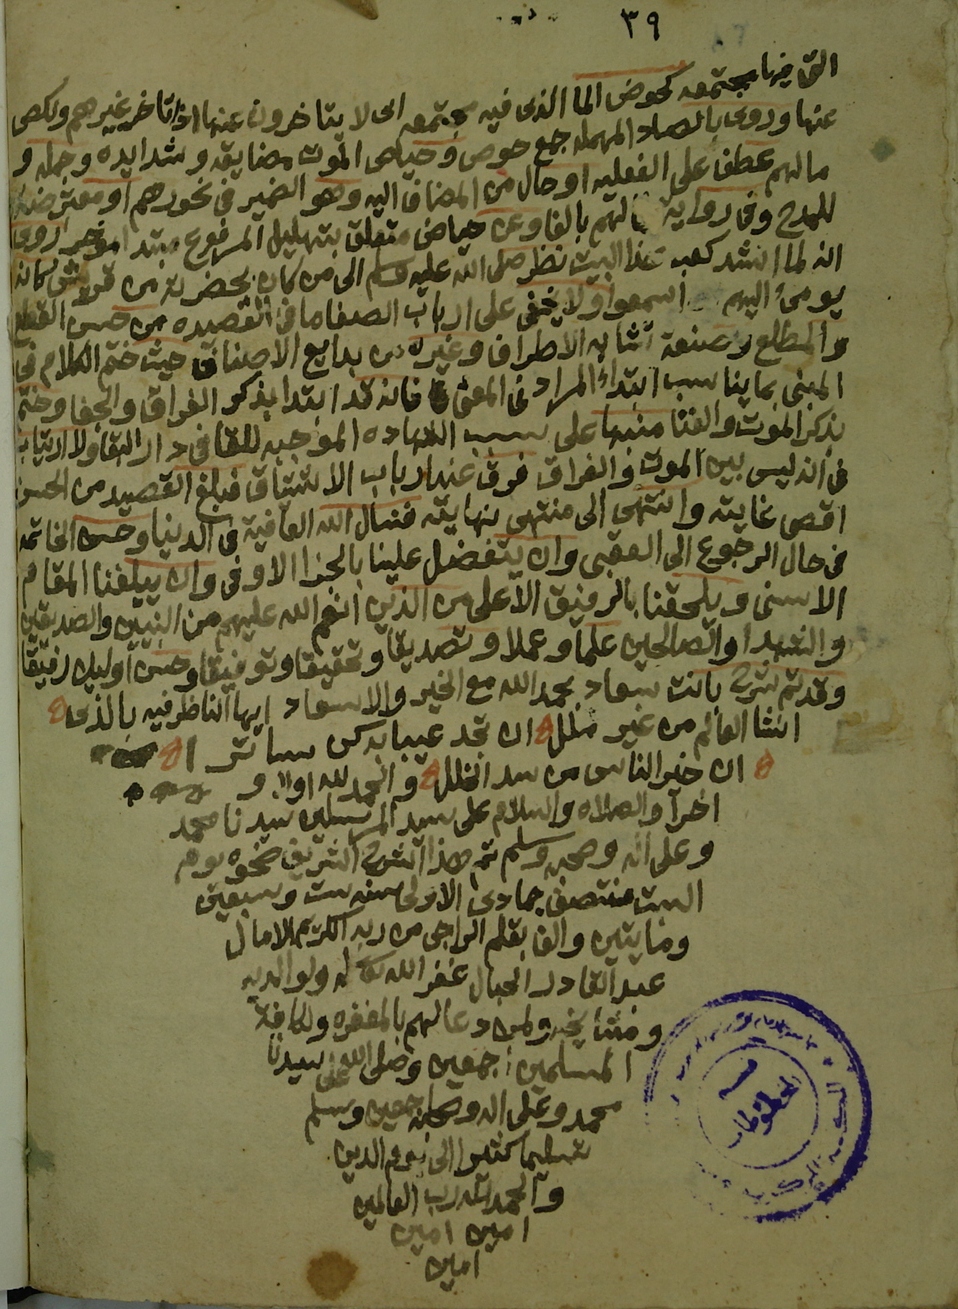 ٣٩
التى فيها مجتمعه كحوض الما الذى فيه مجتمعه اى لا يتاخرون عنها اذا تاخر غيرهم ونكص
عنها وروى بالصاد المهمله جمع حوص وحياص الموت مضايقه وشدايده وجمله و
مالهم عطف على الفعليه او حال من المضاف اليه وهو الضمير فى نحورهم او معترضة
للمدح وفى رواية مالهم بالفا وعن حياض متعلق بتهليل المرفوع مبتدا موخر اروى
انه لما انشد كعب هذا البيت نظر صلى الله عليه وسلم الى من كان بحضرته من قريش كانه
يومئ اليهم اسمعوا ولا يخفى على ارباب الصفا ما فى القصيده من حسن القطع
والمطلع وصنعة تشابه الاطراف وغيره من بدايع الاصناف حيث ختم الكلام فى
المبنى بما يناسب ابتداء المراد فى المعنى فانه قد ابتدا بذكر الفراق والجفا وختم
بذكر الموت والفنا منبها على سبب الشهاده الموجبه للقا فى دار البقا ولا ارتياب
فى انه ليس بين الموت والفراق فرق عند ارباب الاشتياق فبلغ القصيد من الحسن
اقصى غايته وانتهى الى منتهى نهايته فنسال الله العافية فى الدنيا وحسن الخاتمه
فى حال الرجوع الى العقبى وان يتفضل علينا بالجزا الاوفى وان يبلغنا المقام
الاسنى ويلحقنا بالرفيق الاعلى من الذين انعم الله عليهم من النبيين والصديقين
والشهدا والصالحين علما وعملا وتصديقا وتحقيقا وتوفيقا وحسن اوليك رفيقا
وقد تم شرح بانت سعاد بحمد الله مع الخير والاسعاد ايها الناظر فيه بالذى
انشا العالم من غير ملل ان تجد عيبا به كن ساترا
ان خير الناس من سد الخلل والحمد لله اولا و
اخرا والصلاه والسلام على سيد المرسلين سيدنا محمد
وعلى اله وصحبه وسلم تم هذا الشرح الشريف ضحوه يوم
السبت منتصف جمادى الاولى سنه ست وسبعين
ومايتين والف بقلم الراجى من ربه الكريم الامال
عبد القادر الحبال غفر الله له ولوالديه
ومشايخه ولمن دعا لهم بالمغفره ولكافة
المسلمين اجمعين وصلى الله على سيدنا
محمد وعلى اله وصحبه اجمعين وسلم
تسليما كثيرا الى يوم الدين
والحمد لله رب العالمين
امين امين
امين
المخطوطات